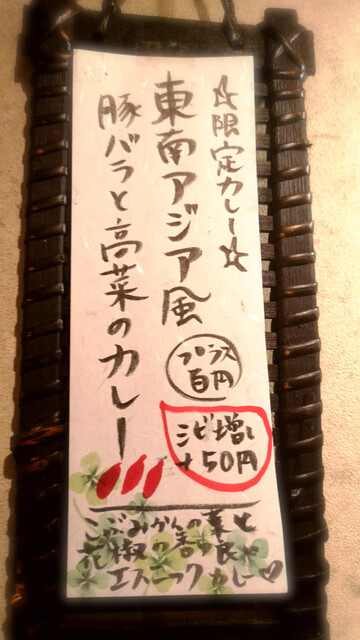 ☆限定カレー☆
東南アジア風
豚バラと高菜のカレー
プラス
百円
シビ増し
+50円
こぶみかんの葉と
花椒の香り良く
エスニックカレー♡